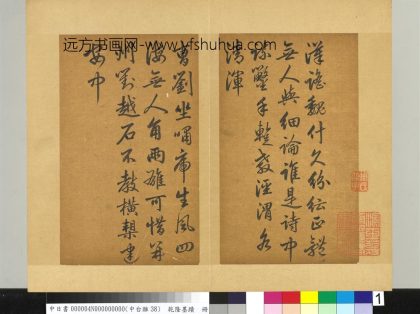 远方书画网-www.yfshuhua.com
漢謠魏什久紛紜正體
無人與細論誰是詩中
疏鑿手暫教涇渭各
清渾
曹劉坐嘯虎生風四
海無人角兩雄可惜并
州劉越石不教橫槊建
安中
中日書 000004N000000000(中台雜38) 乾隆墓鐫 冊
1